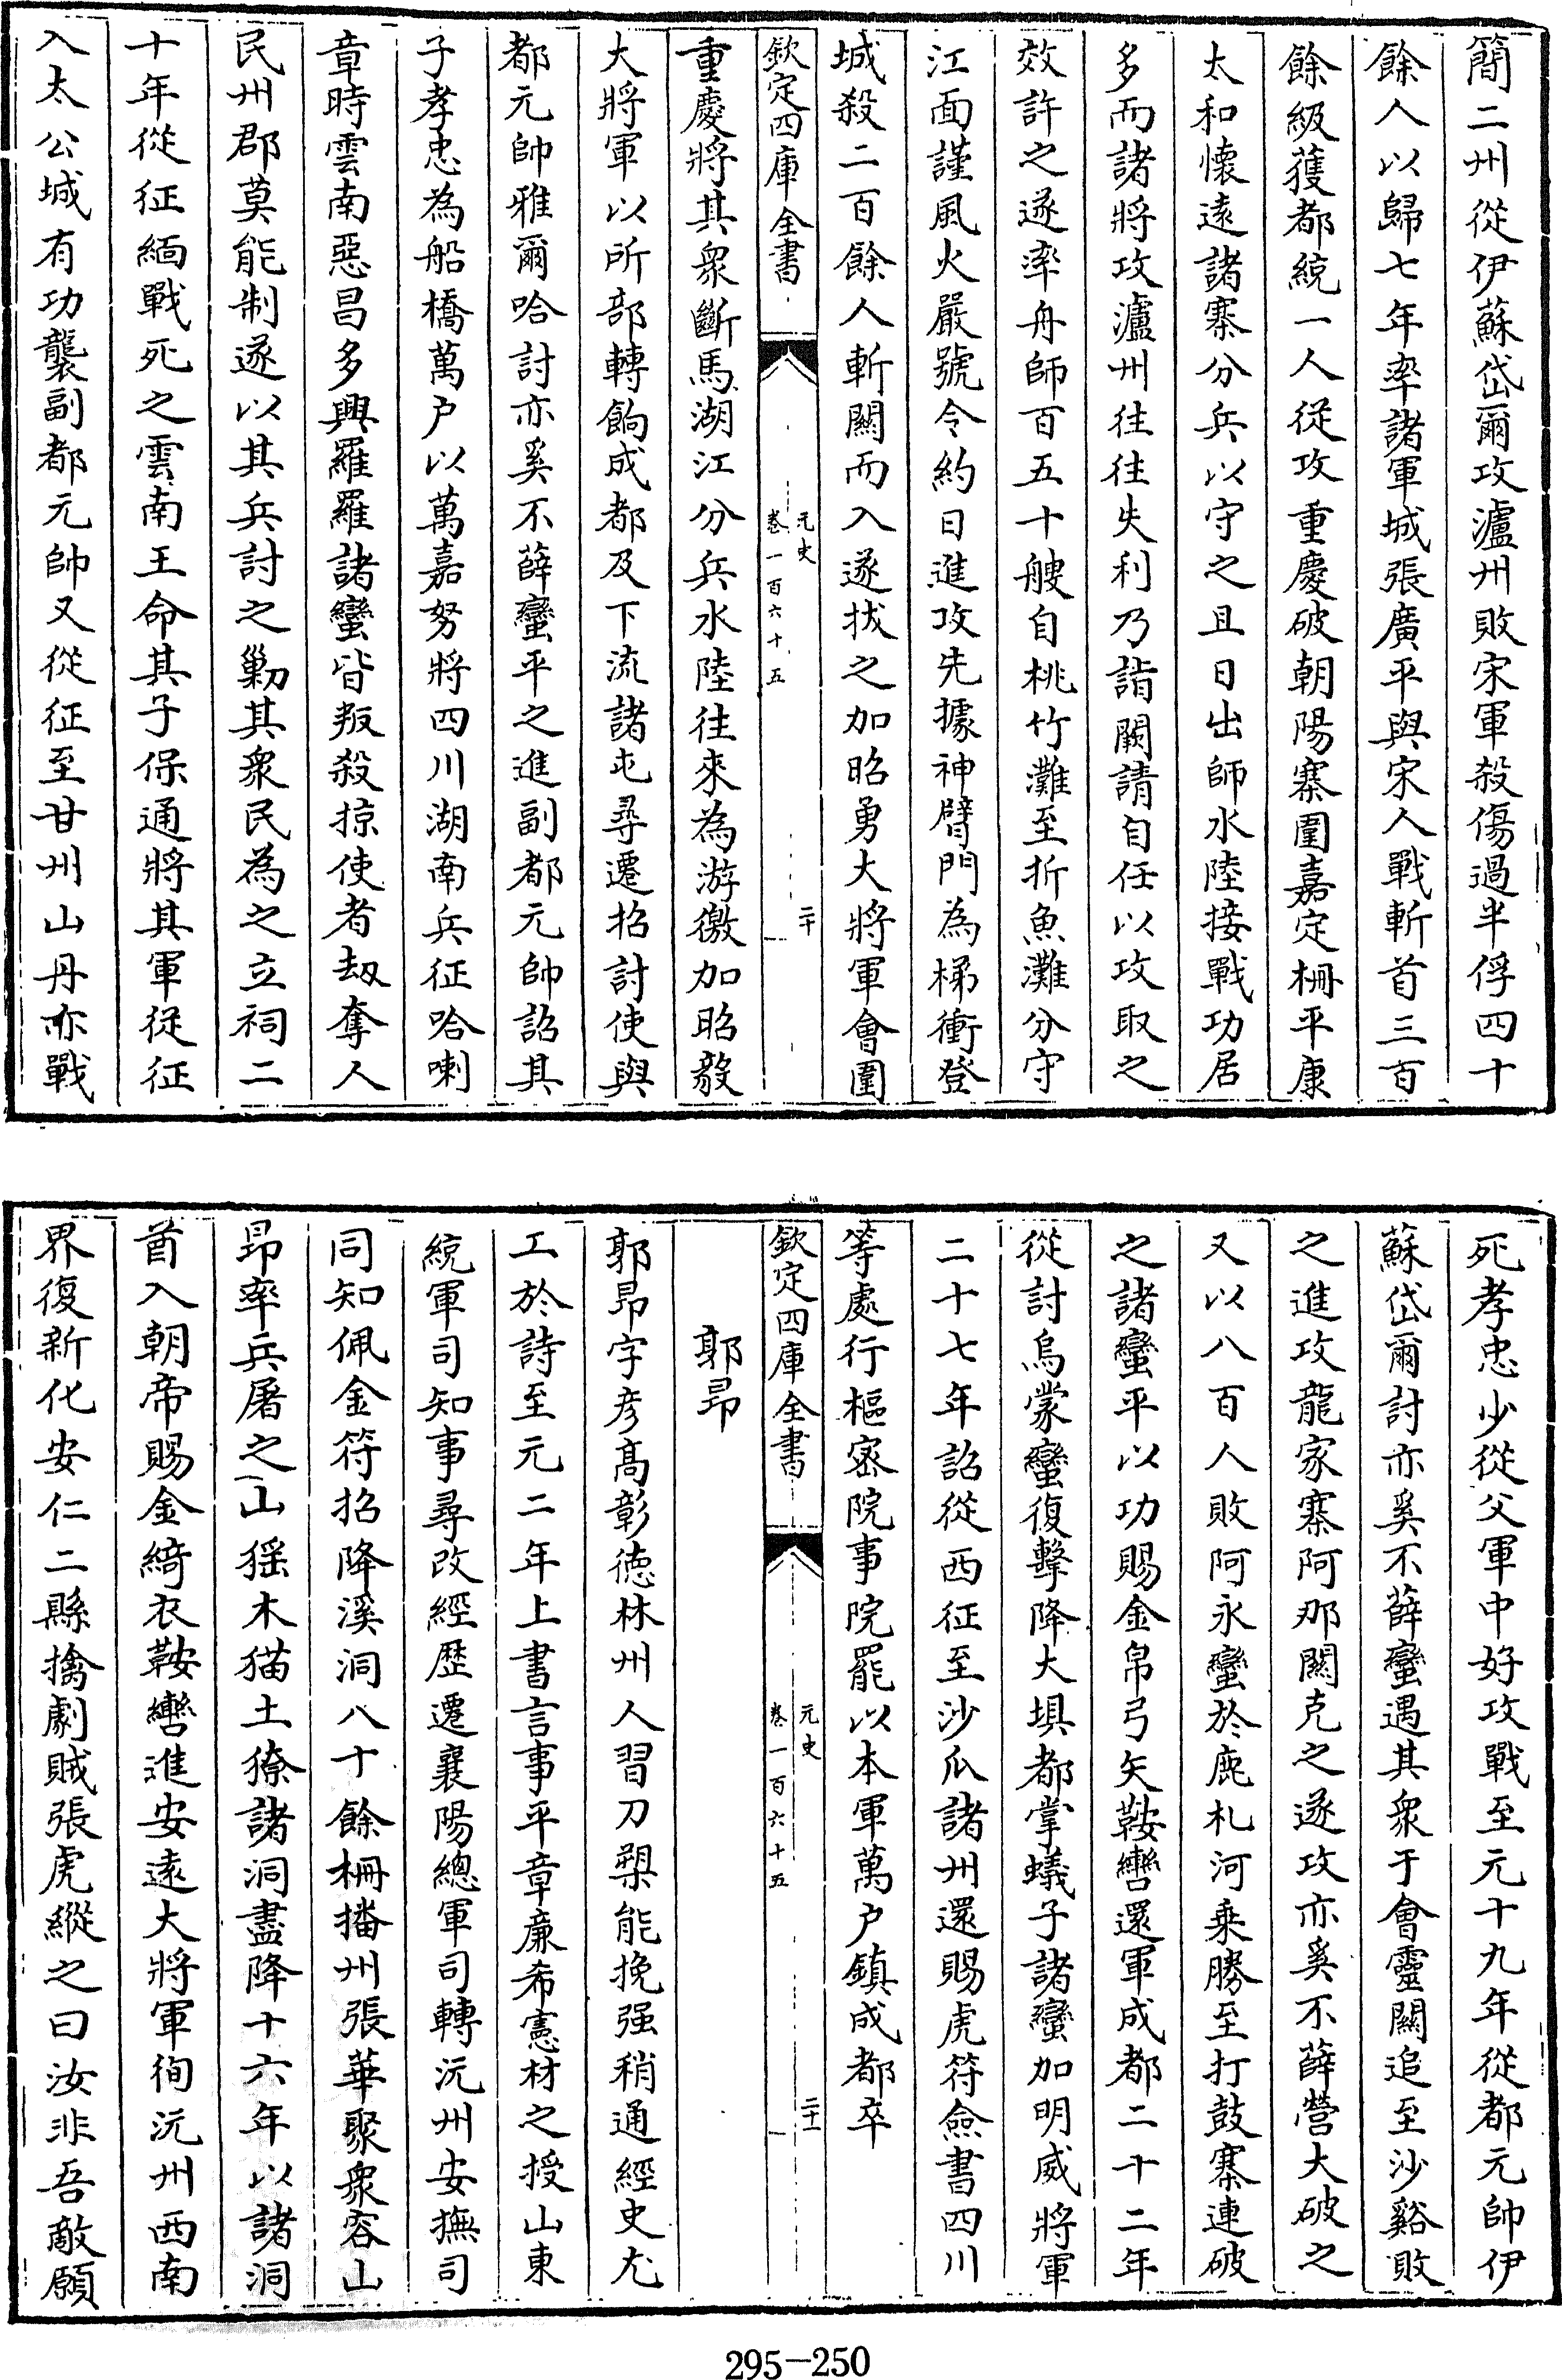 簡二州從伊蘇岱爾攻瀘州敗宋軍殺傷過半俘四十
餘人以歸七年率諸軍城張廣平與宋人戰斬首三百
餘級獲都統一人從攻重慶破朝陽寨圍嘉定柵平康
太和懷遠諸寨分兵以守之且日出師水陸接戰功居
多而諸將攻瀘州往往失利乃詣闕請自任以攻取之
效許之遂率舟師百五十艘自桃竹灘至折魚灘分守
江面謹風火嚴號令約日進攻先據神臂門為梯衝登
城殺二百餘人斬關而入遂拔之加昭勇大將軍會圍
欽定四庫全書
元史
卷一百六十五
二十
重慶將其衆斷馬湖江分兵水陸往來為游徼加昭毅
大將軍以所部轉餉成都及下流諸屯尋遷招討使與
都元帥雅爾哈討亦奚不薛蠻平之進副都元帥詔其
子孝忠為船橋萬户以萬嘉努將四川湖南兵征哈喇
章時雲南惡昌多興羅羅諸蠻皆叛殺掠使者刼奪人
民州郡莫能制遂以其兵討之勦其衆民為之立祠二
十年從征緬戰死之雲南王命其子保通將其軍從征
入太公城有功襲副都元帥又從征至甘州山丹亦戰
死孝忠少從父軍中好攻戰至元十九年從都元帥伊
蘇岱爾討亦奚不薛蠻遇其衆于會靈關追至沙谿敗
之進攻龍家寨阿那關克之遂攻亦奚不薛營大破之
又以八百人敗阿永蠻於鹿札河乗勝至打鼓寨連破
之諸蠻平以功賜金帛弓矢鞍轡還軍成都二十二年
從討烏蒙蠻復擊降大垻都掌蟻子諸蠻加明威將軍
二十七年詔從西征至沙瓜諸州還賜虎符僉書四川
等處行樞密院事院罷以本軍萬户鎮成都卒
欽定四庫全書
元史
卷一百六十五
二十一
郭昻
郭昻字彦髙彰徳林州人習刀槊能挽强稍通經史尤
工於詩至元二年上書言事平章廉希憲材之授山東
統軍司知事尋改經歴遷襄陽總軍司轉沅州安撫司
同知佩金符招降溪洞八十餘柵播州張華聚衆容山
昻率兵屠之山猺木猫土獠諸洞盡降十六年以諸洞
酋入朝帝賜金綺衣鞍轡進安遠大將軍徇沅州西南
界復新化安仁二縣擒劇賊張虎縱之曰汝非吾敵願
295-250